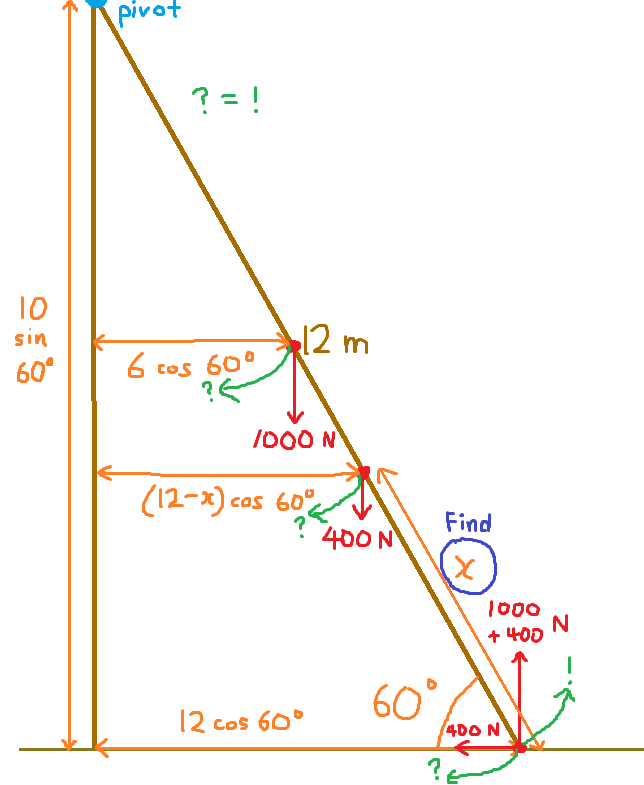 pivot
? = !
10
sin
60°
12 m
6 cos 60°
?
1000 N
(12-x) cos 60°
?
400 N
Find
x
1000
+ 400 N
!
60°
12 cos 60°
400 N
?